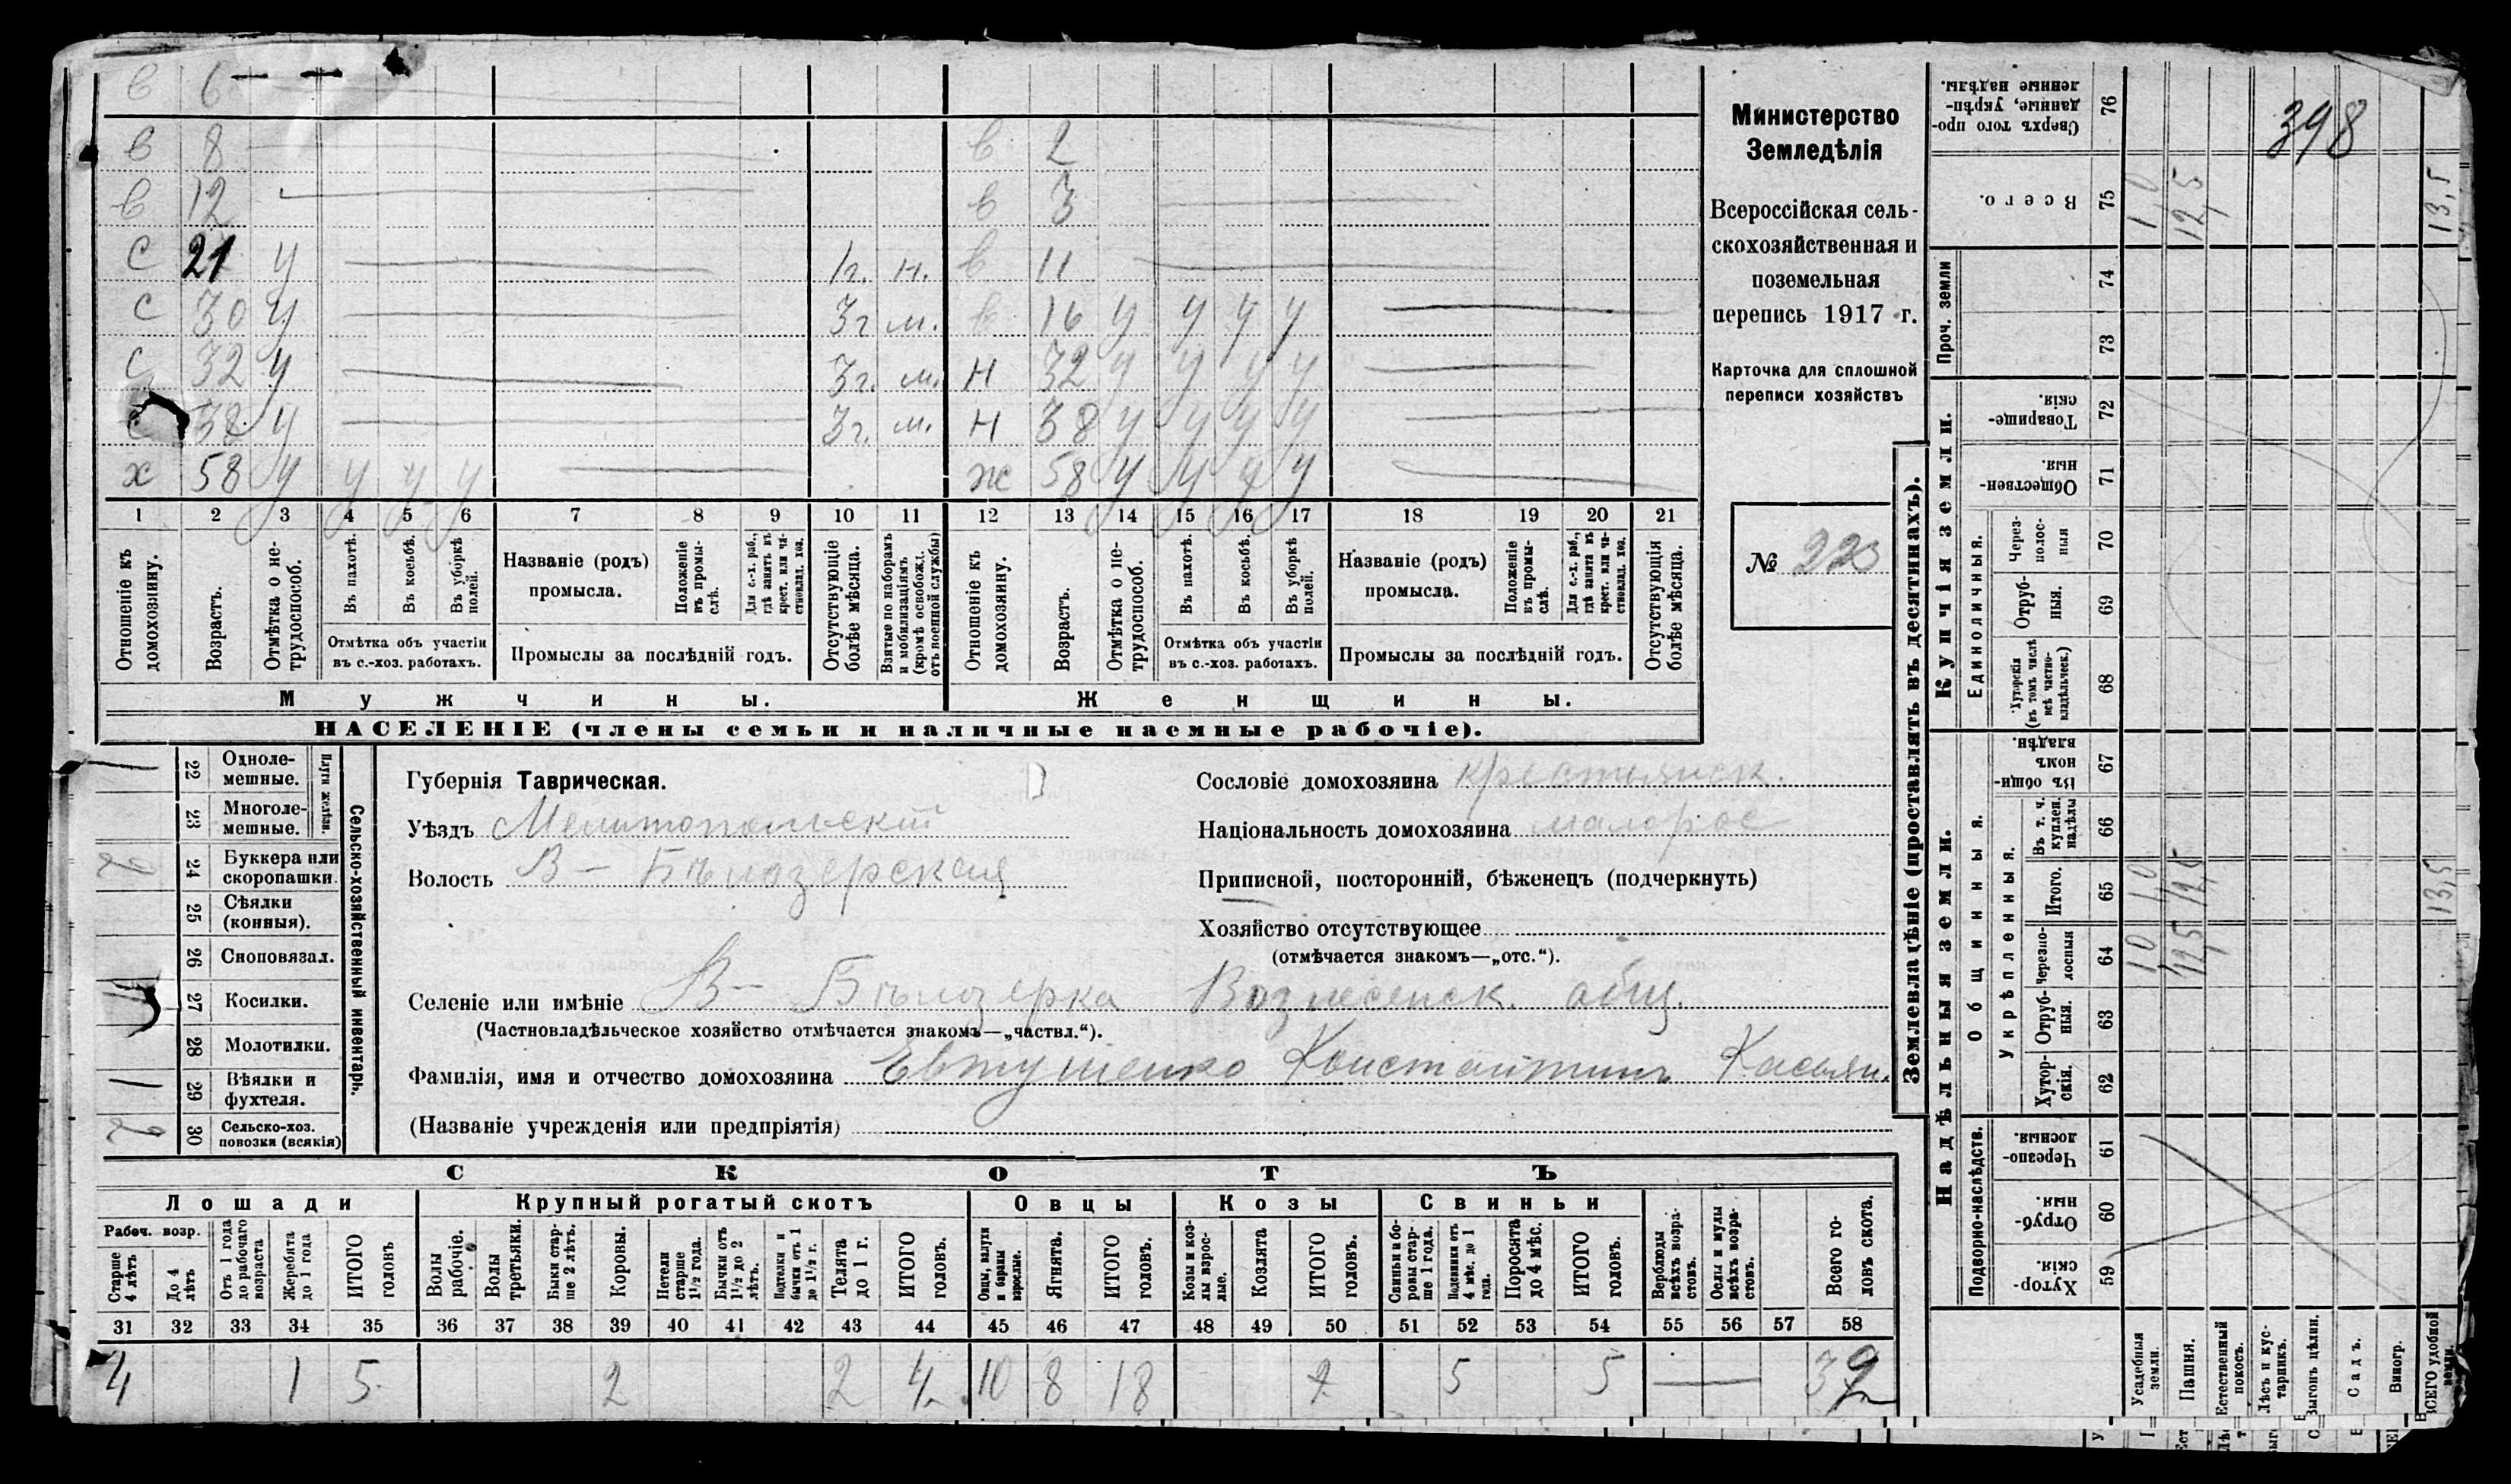 в 6
в 8 в 2
в 12 в 3
с 21 у 1г. н. в 11
с 30 у 3г м. в 16 у у у у
с 32 у 3г. м. н 32 у у у у
с 38 у 3г. м. н 38 у у у у
х 58 у у у у ж 58 у у у у
1 2 3 4 5 6 7 8 9 10 11 12 13 14 15 16 17 18 19 20 21
Отношеніе къ домохозяину.
Возрастъ.
Отмѣтка о нетрудоспособ.
Въ пахотѣ.
Въ косьбѣ.
Въ уборкѣ полей.
Отмѣтка объ участіи
въ с.-хоз. работахъ.
Названіе (родъ)
промысла.
Положеніе въ промыслѣ.
Для с.-х. раб., гдѣ занятъ въ крест. или частновлад. хоз.
Промыслы за послѣдній годъ.
Отсутствующіе болѣе мѣсяца.
Взятые по наборамъ и мобилизаціямъ (кромѣ освобожд. отъ военной службы)
Отношеніе къ домохозяину.
Возрастъ.
Отмѣтка о нетрудоспособ.
Въ пахотѣ.
Въ косьбѣ.
Въ уборкѣ полей.
Отмѣтка объ участіи
въ с.-хоз. работахъ.
Названіе (родъ)
промысла.
Положеніе въ промыслѣ.
Для с.-х. раб., гдѣ занята въ крест. или частновлад. хоз.
Промыслы за послѣдній годъ.
Отсутствующія болѣе мѣсяца.
Мужчины. Женщины.
НАСЕЛЕНІЕ (члены семьи и наличные наемные рабочіе).
Министерство
Земледѣлія
Всероссійская сель-
скохозяйственная и
поземельная
перепись 1917 г.
Карточка для сплошной
переписи хозяйствъ
№ 223
Сельско-хозяйственный инвентарь.
Плуги желѣзн.
22 Одноле-
мешные.
23 Многоле-
мешные.
2 24 Буккера или
скоропашки.
25 Сѣялки
(конныя).
26 Сноповязал.
1 27 Косилки.
28 Молотилки.
1 29 Вѣялки и
фухтеля.
2 30 Сельско-хоз.
повозки (всякія)
Губернія Таврическая.
Уѣздъ Мелитопольскій
Волость В-Бѣлозерская
Сословіе домохозяина крестьянск.
Національность домохозяина малорос
Приписной, посторонній, бѣженецъ (подчеркнуть)
Хозяйство отсутствующее
(отмѣчается знакомъ—„отс.“).
Селеніе или имѣніе В-Бѣлозерка Вознесенск. общ.
(Частновладѣльческое хозяйство отмѣчается знакомъ—„частвл.“).
Фамилія, имя и отчество домохозяина Евтушенко Константинъ Касьян.
(Названіе учрежденія или предпріятія)
СКОТЪ
Лошади Крупный рогатый скотъ Овцы Козы Свиньи
Рабоч. возр.
Старше 4 лѣтъ
До 4 лѣтъ
Отъ 1 года до рабочаго возраста
Жеребята до 1 года
ИТОГО головъ
Волы рабочіе.
Волы третьяки.
Быки старше 2 лѣтъ.
Коровы.
Нетели старше 1½ года.
Бычки отъ 1½ до 2 лѣтъ.
Подтелки и бычки отъ 1 до 1½ г.
Телята до 1 г.
ИТОГО головъ.
Овцы, валухи и бараны взрослые.
Ягнята.
ИТОГО головъ.
Козы и козлы взрослые.
Козлята
ИТОГО головъ.
Свиньи и боровы старше 1 года.
Подсвинки отъ 4 мѣс. до 1 года.
Поросята до 4 мѣс.
ИТОГО головъ.
Верблюды всѣхъ возрастовъ.
Ослы и мулы всѣхъ возрастовъ.
Всего головъ скота.
31 32 33 34 35 36 37 38 39 40 41 42 43 44 45 46 47 48 49 50 51 52 53 54 55 56 57 58
4 1 5 2 2 4 10 8 18 5 5
Землевладѣніе (проставлять въ десятинахъ).
398
Сверхъ того проданные, укрѣпленные надѣлы. 76
Всего. 75 1,0 12,5 13,5
Проч. земли 74
73
Купчія земли.
Товарищескія. 72
Общественныя. 71
Единоличныя.
Черезполосныя 70
Отрубныя. 69
Хуторскія (въ томъ числѣ всѣ частновладѣльческ.) 68
Надѣльныя земли.
Общинныя.
Въ общинномъ владѣн. 67
Укрѣпленныя.
Въ т. ч. куплен. надѣлы 66
Итого. 65 1,0 12,5 13,5
Черезполосныя 64 1,0 12,5
Отрубныя. 63
Хуторскія. 62
Подворно-наслѣдств.
Черезполосныя. 61
Отрубныя. 60
Хуторскія. 59
Усадебныя земли.
Пашня.
Естественный покосъ.
Лѣсъ и кустарникъ.
Выгонъ цѣлин.
Садъ.
Виногр.
ВСЕГО удобной земли.